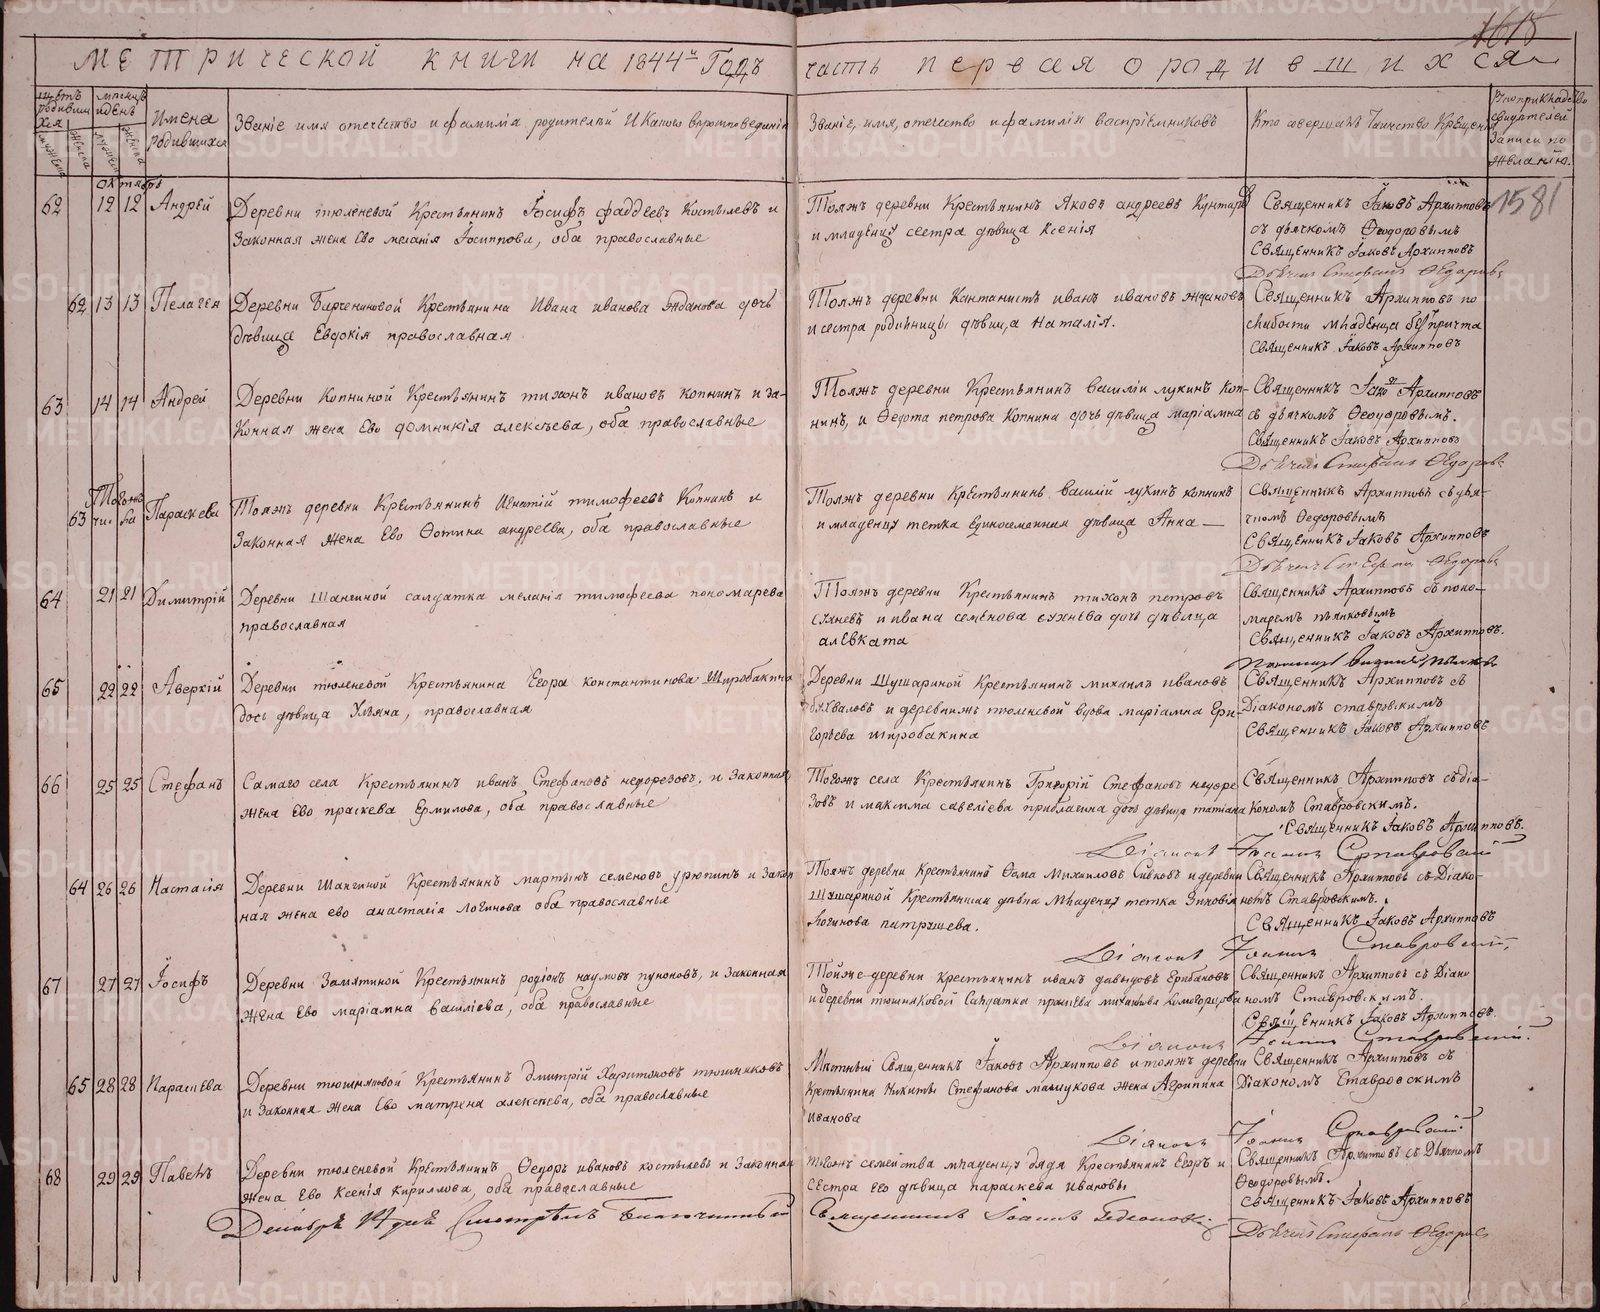 1618
МЕТРИЧЕСКОЙ КНИГИ НА 1844й Годъ
часть первая о родившихся
щетъ родившихся
мужеска
женска
месяцъ и день
Имена родившихся
Званіе имя отечество и фамилія родителей и какого вероисповеданія
Званіе, имя, отечество и фамилія воспріемниковъ
Кто совершалъ Таинство Крещенія
Рукоприкладство свидетелей записи по желанію.
октябрь
1581
62 12 12 Андрей
Деревни тюленевой Крестьянинъ Іосифъ фаддеевъ Костылевъ и
Законная жена Ево меланія Іосиппова, оба православные
Тояжъ деревни Крестьянинъ Яковъ андреевъ
и младенцу сестра дѣвица Ксенія
Священникъ Іаковъ Архипповъ
съ дьячкомъ Ѳеодоровымъ
Священникъ Іаковъ Архипповъ
Дьячекъ Стефанъ Ѳедоровъ
62 13 13 Пелагея
Деревни Крестьянина Ивана иванова Жданова дочь
дѣвица Евдокія православная
Тояжъ деревни Кантонистъ иванъ ивановъ ждановъ
и сестра родильницы дѣвица наталія.
Священникъ Архипповъ по
слабости младенца безъ причта
Священникъ Іаковъ Архипповъ
63 14 14 Андрей
Деревни Копниной Крестьянинъ тихонъ ивановъ копнинъ и за-
конная жена Ево домникія алексѣева, оба православные
Тояжъ деревни Крестьянинъ василій лукинъ коп-
нинъ, и Ѳедота петрова Копнина дочь дѣвица маріамна
Священникъ Іаковъ Архипповъ
съ дьячкомъ Ѳеодоровымъ.
Священникъ Іаковъ Архипповъ
Дьячекъ Стефанъ Ѳедоровъ
63 Тогожъ числа Параскева
Тояжъ деревни Крестьянинъ Игнатій тимофеевъ Копнинъ и
Законная жена Ево Фотина андреева, оба православные
Тояжъ деревни Крестьянинъ василій лукинъ копнинъ
и младенцу тетка Единосеменная дѣвица Анна
Священникъ Архипповъ съ дья-
чкомъ Ѳедоровымъ
Священникъ Іаковъ Архипповъ
Дьячекъ Стефанъ Ѳедоровъ
64 21 21 Димитрій
Деревни Шангиной салдатка меланія тимофеева пономарева
православная
Тояжъ деревни Крестьянинъ тихонъ петровъ
сухневъ и ивана семенова сухнева дочь дѣвица
алевката
Священникъ Архипповъ съ поно-
маремъ
Священникъ Іаковъ Архипповъ.
65 22 22 Аверкій
Деревни тюленевой Крестьянина Егора константинова Широбакина
дочь дѣвица Ульяна, православная
Деревни Шушариной Крестьянинъ михаилъ ивановъ
бухваловъ и деревнижъ тюленевой вдова маріамна Гри-
горьева широбакина
Священникъ Архипповъ съ
Діакономъ ставровскимъ
Священникъ Іаковъ Архипповъ
66 25 25 Стефанъ
Самаго села Крестьянинъ иванъ Стефановъ недорезовъ, и Законная
жена Ево праскева Ермилова, оба православные
Тогожъ села Крестьянинъ Григорій Стефановъ недоре-
зовъ и максима савеліева дочь дѣвица татіана
Священникъ Архипповъ съ діа-
кономъ Ставровскимъ.
Священникъ Іаковъ Архипповъ.
Діаконъ Іоаннъ Ставровскій
64 26 26 Настасія
Деревни Шангиной Крестьянинъ мартынъ семеновъ урюпинъ и закон
ная жена ево анастасія логинова оба православные
Тояжъ деревни Крестьянинъ Ѳома Михаиловъ Сивковъ и деревни
Шушариной Крестьянская дѣвка Младенцу тетка Зиновія
Логинова патрушева.
Священникъ Архипповъ съ Діако-
номъ Ставровскимъ.
Священникъ Іаковъ Архипповъ
Діаконъ Іоаннъ Ставровскій.
67 27 27 Іосифъ
Деревни Замятиной Крестьянинъ родіонъ наумовъ и Законная
жена Ево маріамна василіева, оба православные
Тойже деревни крестьянинъ иванъ давыдовъ
и деревни тюшняковой Салдатка михаилова
Священникъ Архипповъ съ Діако
номъ Ставровскимъ.
Священникъ Іаковъ Архипповъ.
Діаконъ Іоаннъ Ставровскій.
65 28 28 Параскева
Деревни тюшняковой Крестьянинъ дмитрій Харитоновъ тюшняковъ
и Законная Жена Ево матрена алексѣева, оба православные
Мѣстный Священникъ Іаковъ Архипповъ и тояжъ деревни
Крестьянина Никиты Стефанова жена Агрипина
иванова
Священникъ Архипповъ съ
Діакономъ Ставровскимъ
Діаконъ Іоаннъ Ставровскій.
68 29 29 Павелъ
Деревни тюленевой Крестьянинъ Ѳедоръ ивановъ костылевъ и Законная
жена Ево Ксенія Кириллова, оба православные
тогожъ семейства младенцу дядя Крестьянинъ Егоръ и
Сестра его дѣвица параскева Ивановы
Священникъ Архипповъ съ Дьячкомъ
Ѳеодоровымъ.
Священникъ Іаковъ Архипповъ
Дьячекъ Стефанъ Ѳедоровъ
Декабря дня Смотрѣлъ Благочинный
Священникъ Іоаннъ
METRIKI.GASO-URAL.RU